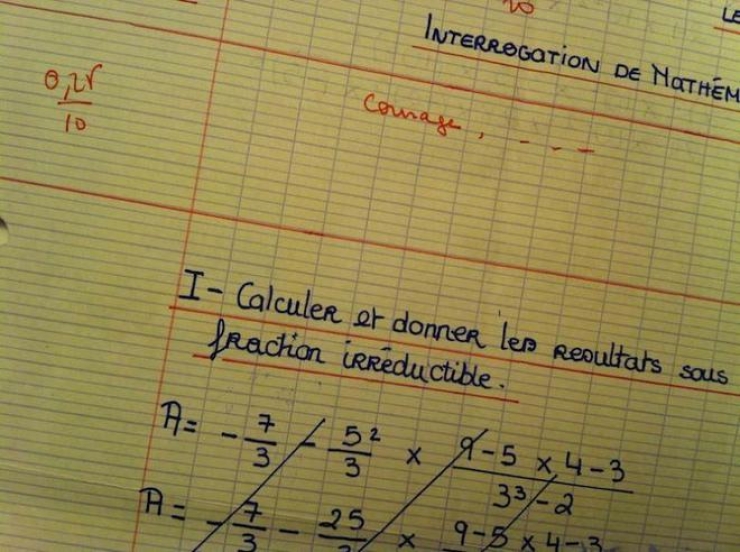 INTERROGATION DE MATHÉM
0,25
10
Courage, - - - -
I - Calculer et donner les résultats sous
fraction irréductible.
A = - 7/3 - 5²/3 × 9-5 × 4-3 / 3³-2
A = - 7/3 - 25 × 9-5 × 4-3